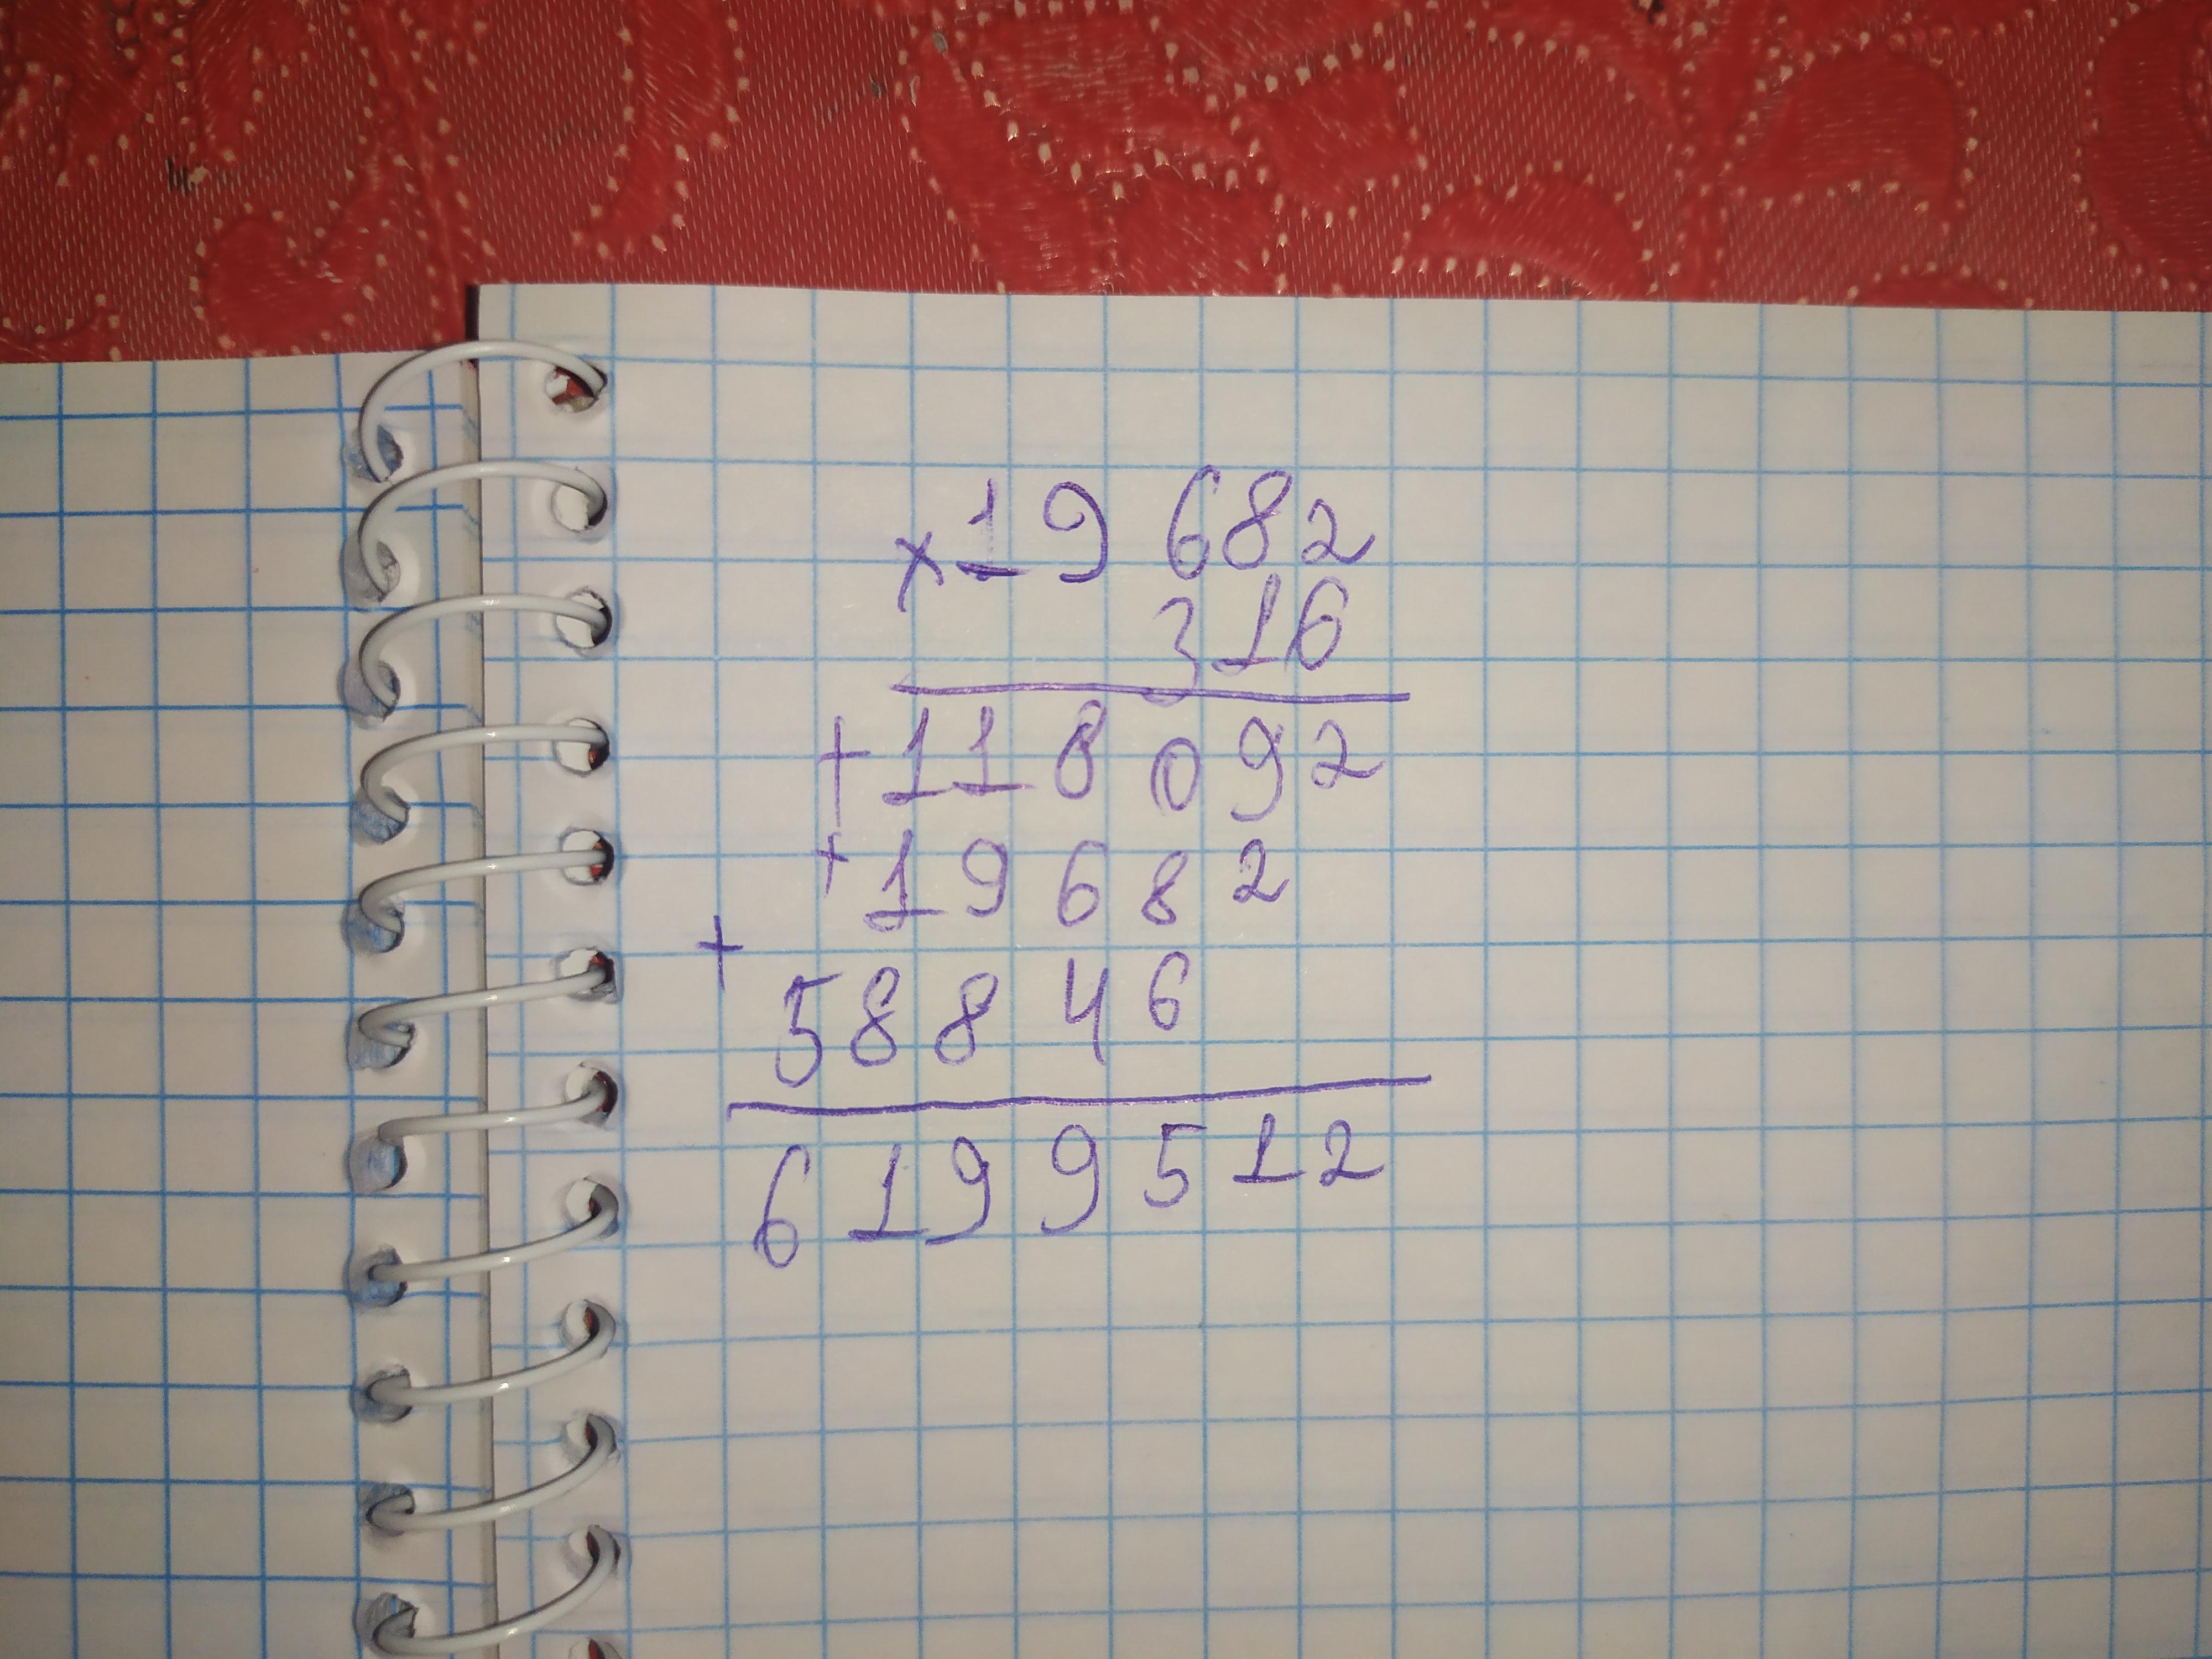 ×19 682
316
+118 092
+19682
+
58846
6199512